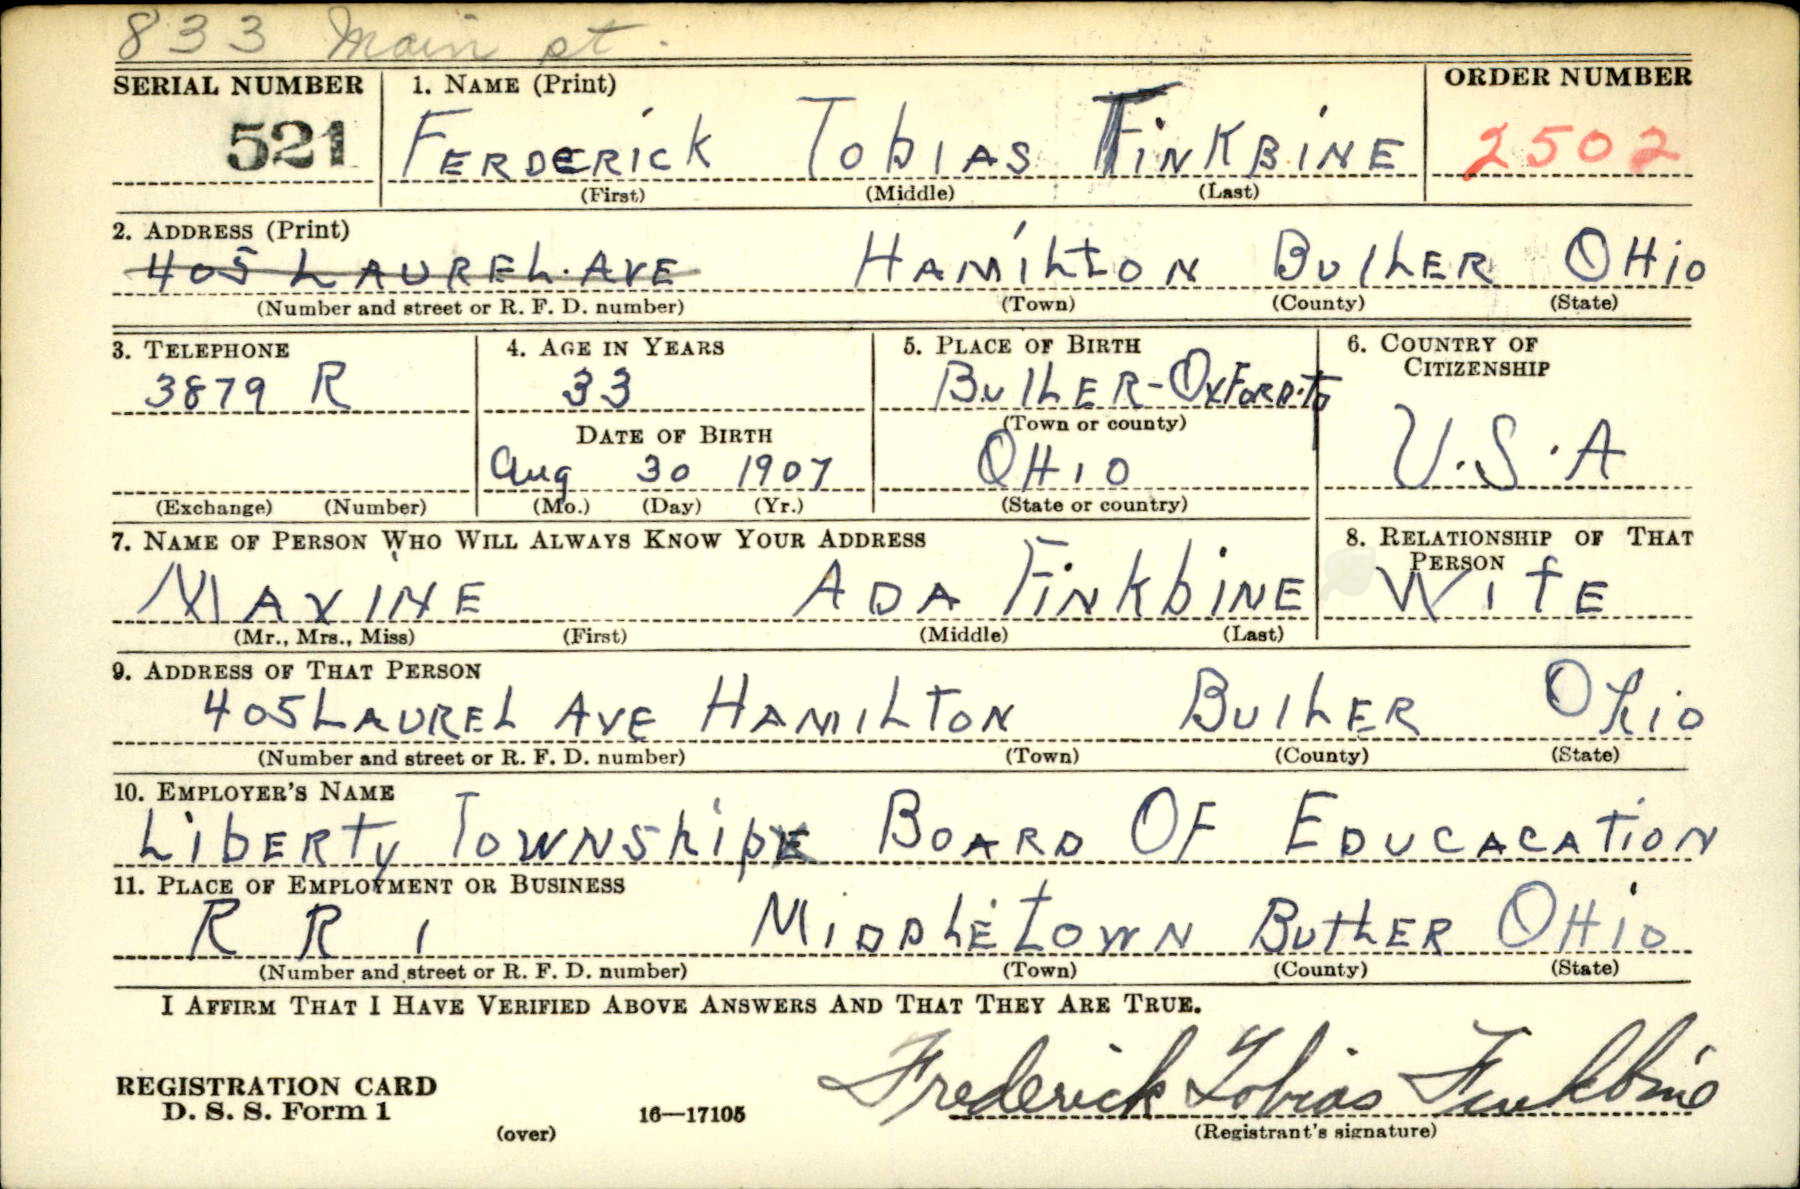 833 Main st.
SERIAL NUMBER 1. NAME (Print) ORDER NUMBER
521 FERDERICK TobIAS FiNKBiNE 2502
(First) (Middle) (Last)
2. ADDRESS (Print)
405 LAUREL. AVE HAMiLTON BUTLER OHio
(Number and street or R. F. D. number) (Town) (County) (State)
3. TELEPHONE 4. AGE IN YEARS 5. PLACE OF BIRTH 6. COUNTRY OF CITIZENSHIP
3879 R 33 BUTLER-OXFORD.To
DATE OF BIRTH (Town or county)
Aug 30 1907 OHIO U.S.A
(Exchange) (Number) (Mo.) (Day) (Yr.) (State or country)
7. NAME OF PERSON WHO WILL ALWAYS KNOW YOUR ADDRESS 8. RELATIONSHIP OF THAT PERSON
MAXINE ADA FiNKbiNE WIfE
(Mr., Mrs., Miss) (First) (Middle) (Last)
9. ADDRESS OF THAT PERSON
405 LAUREL AVE HAMILTON BUTLER Ohio
(Number and street or R. F. D. number) (Town) (County) (State)
10. EMPLOYER'S NAME
LibERTy TOWNShip BOARD OF EDUCACATiON
11. PLACE OF EMPLOYMENT OR BUSINESS
R R 1 MIDDLETOWN BUTLER OHIO
(Number and street or R. F. D. number) (Town) (County) (State)
I AFFIRM THAT I HAVE VERIFIED ABOVE ANSWERS AND THAT THEY ARE TRUE.
Frederick Tobias Finkbine
REGISTRATION CARD
D. S. S. Form 1 16—17105
(over) (Registrant's signature)